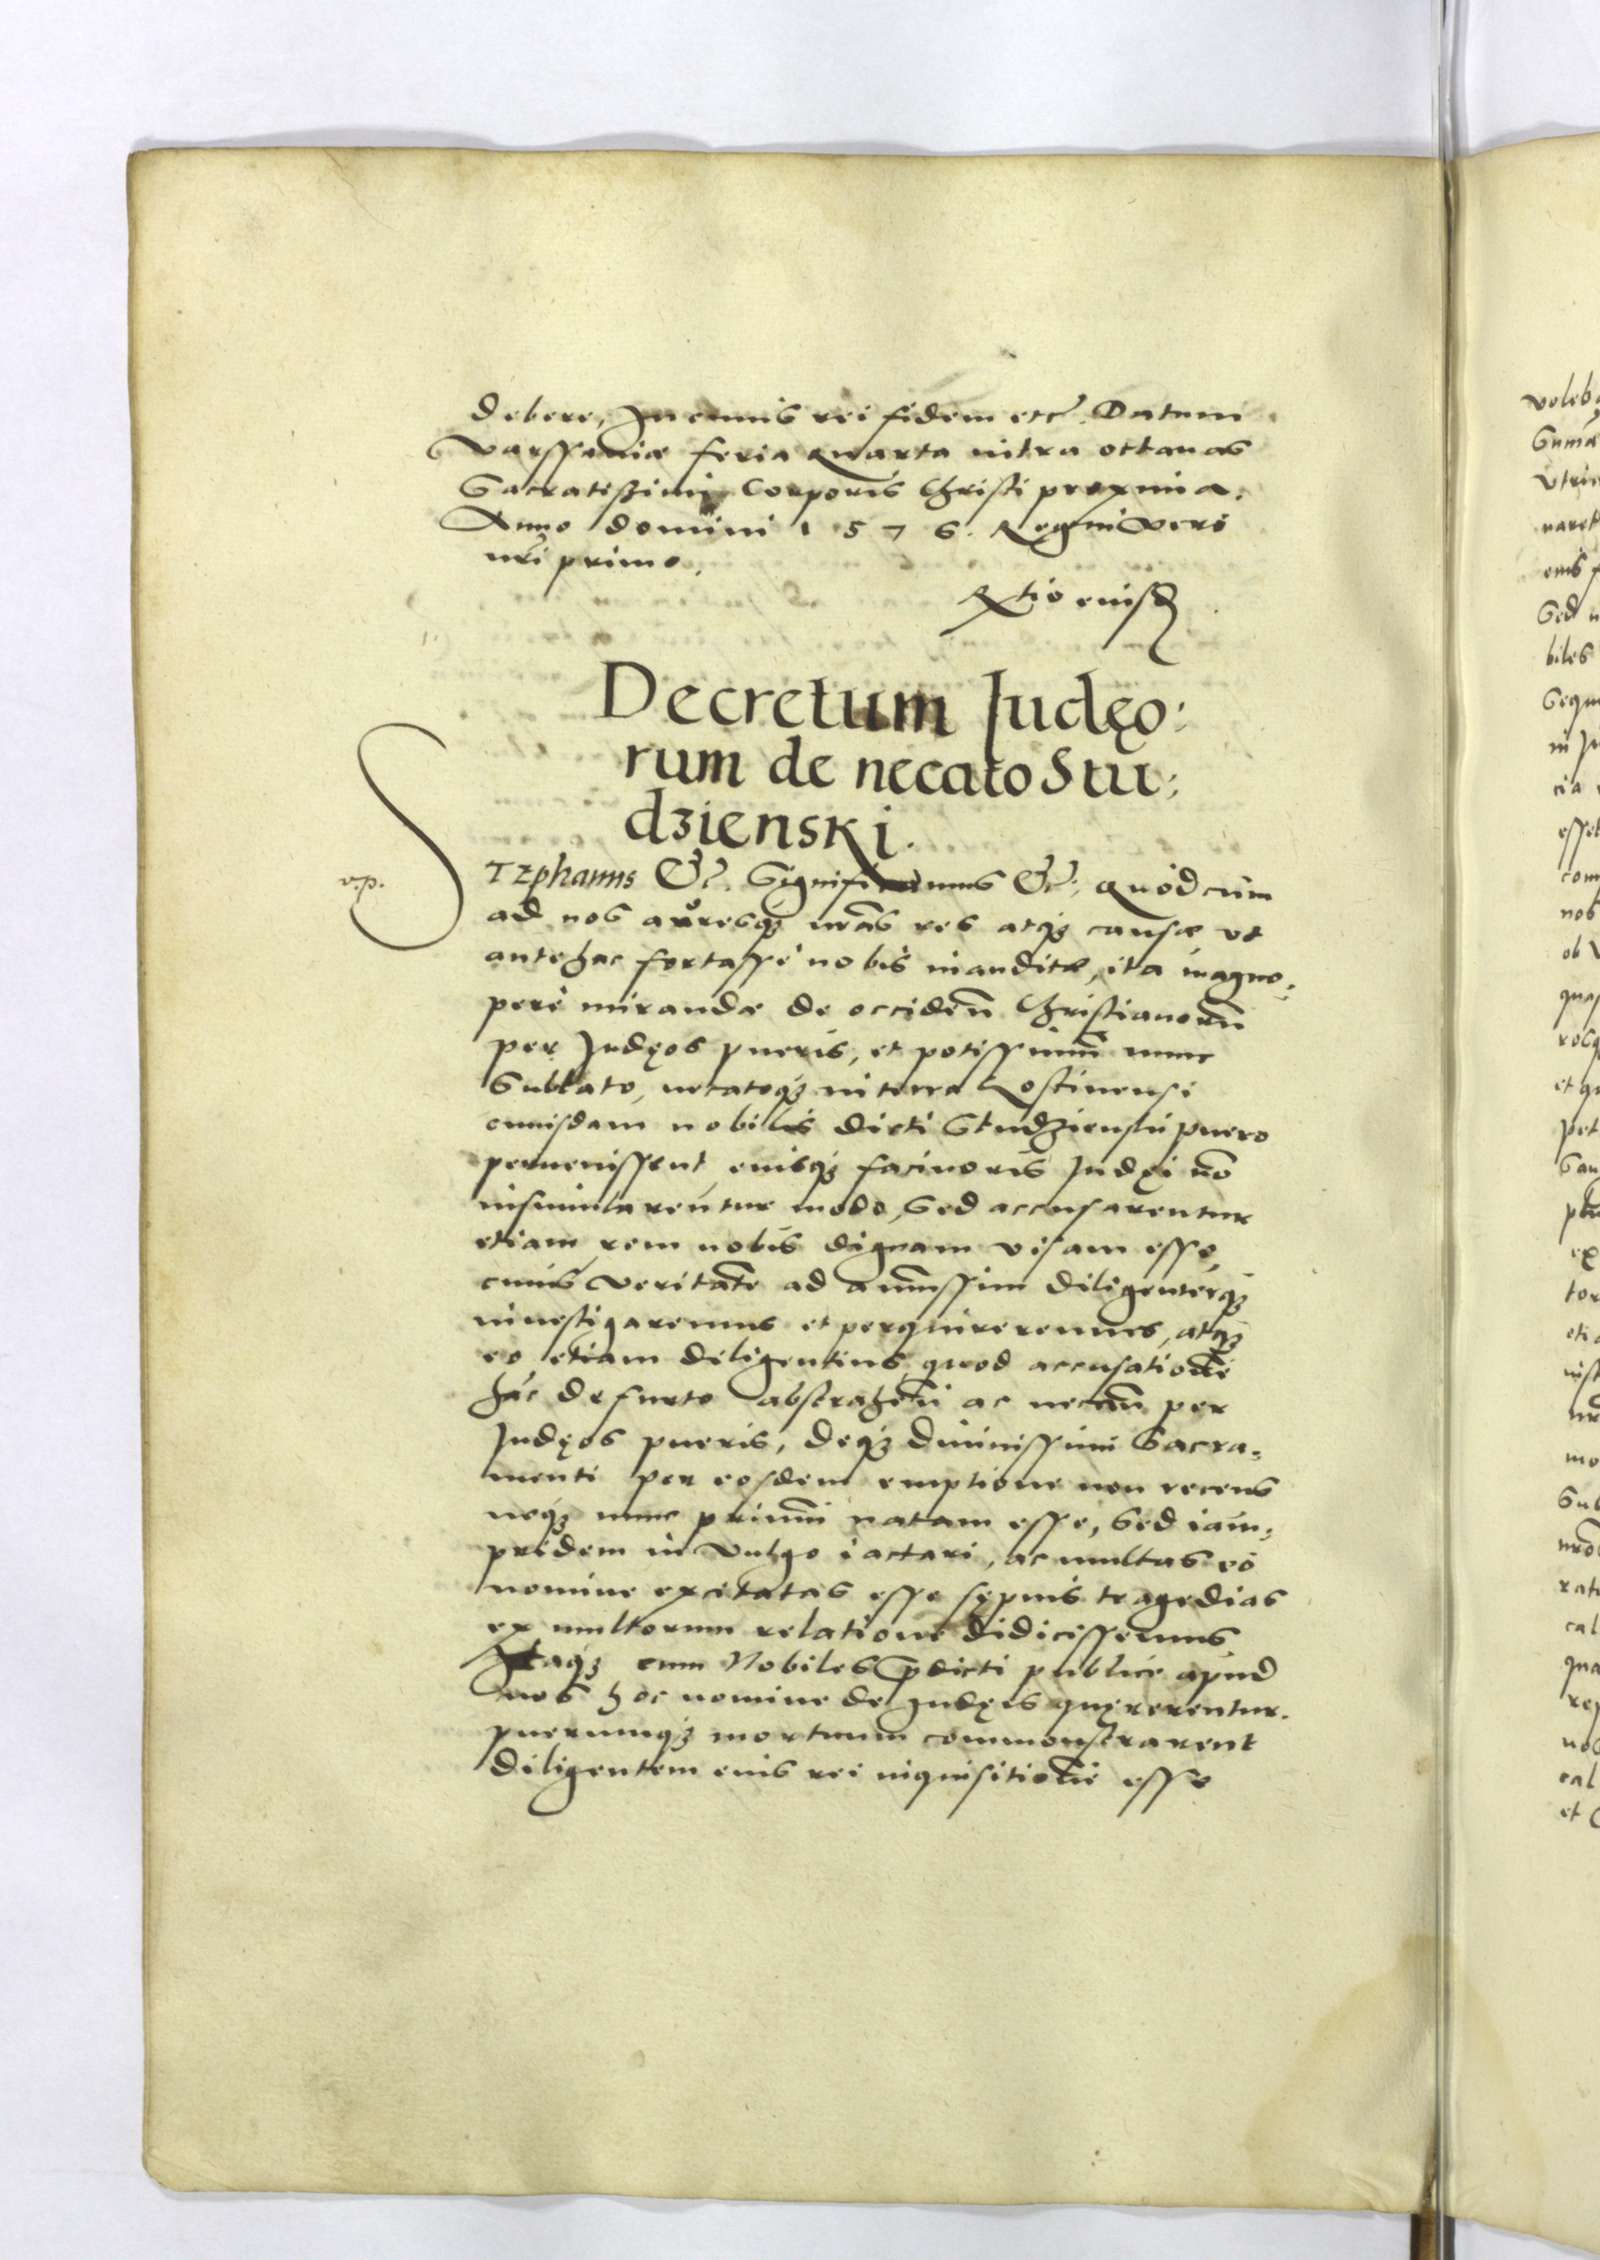 debere, In cuius rei fidem etc. Datum
Varssaviæ feria quarta intra octavas
Sacratissimi Corporis Christi proxima.
Anno domini 1576. Regni vero
nri primo.
Rtio eiusd
Decretum Judęo:
rum de necato Stu:
dzienski.
v.p.
STEphanus &c. Significamus &c. quòd cùm
ad nos auresq nras res atq causæ ut
antehac fortassè nobis inauditæ, ita magno:
perè mirandæ de occiden Christianorum
per Judęos pueris, et potissimum nunc
sublato, necatoq in terra Gostinensi
cuiusdam nobilis dicti Studzienski puero
pervenissent, eiusq facinoris Judęi no
insimularentur modo, sed accusarentur
etiam, rem nobis dignam visam esse,
cuius veritate ad amussim diligenterq
investigaremus et perquireremus, atq
eo etiam diligentius, quod accusatione
hac de furto abstrahen ac necan per
Judęos pueris, deq divinissimi Sacra:
menti per eosdem emptione non recens
neq nunc primum natam esse, sed iam:
pridem in vulgo iactari, ac multas eo
nomine excitatas esse sępius tragedias
ex multorum relatione didicissemus
Itaq cum Nobiles pdicti publice apud
nos hoc nomine de Judęis quęrerentur.
puerumq mortuum commonstrarent
diligentem eius rei inquisitione esse